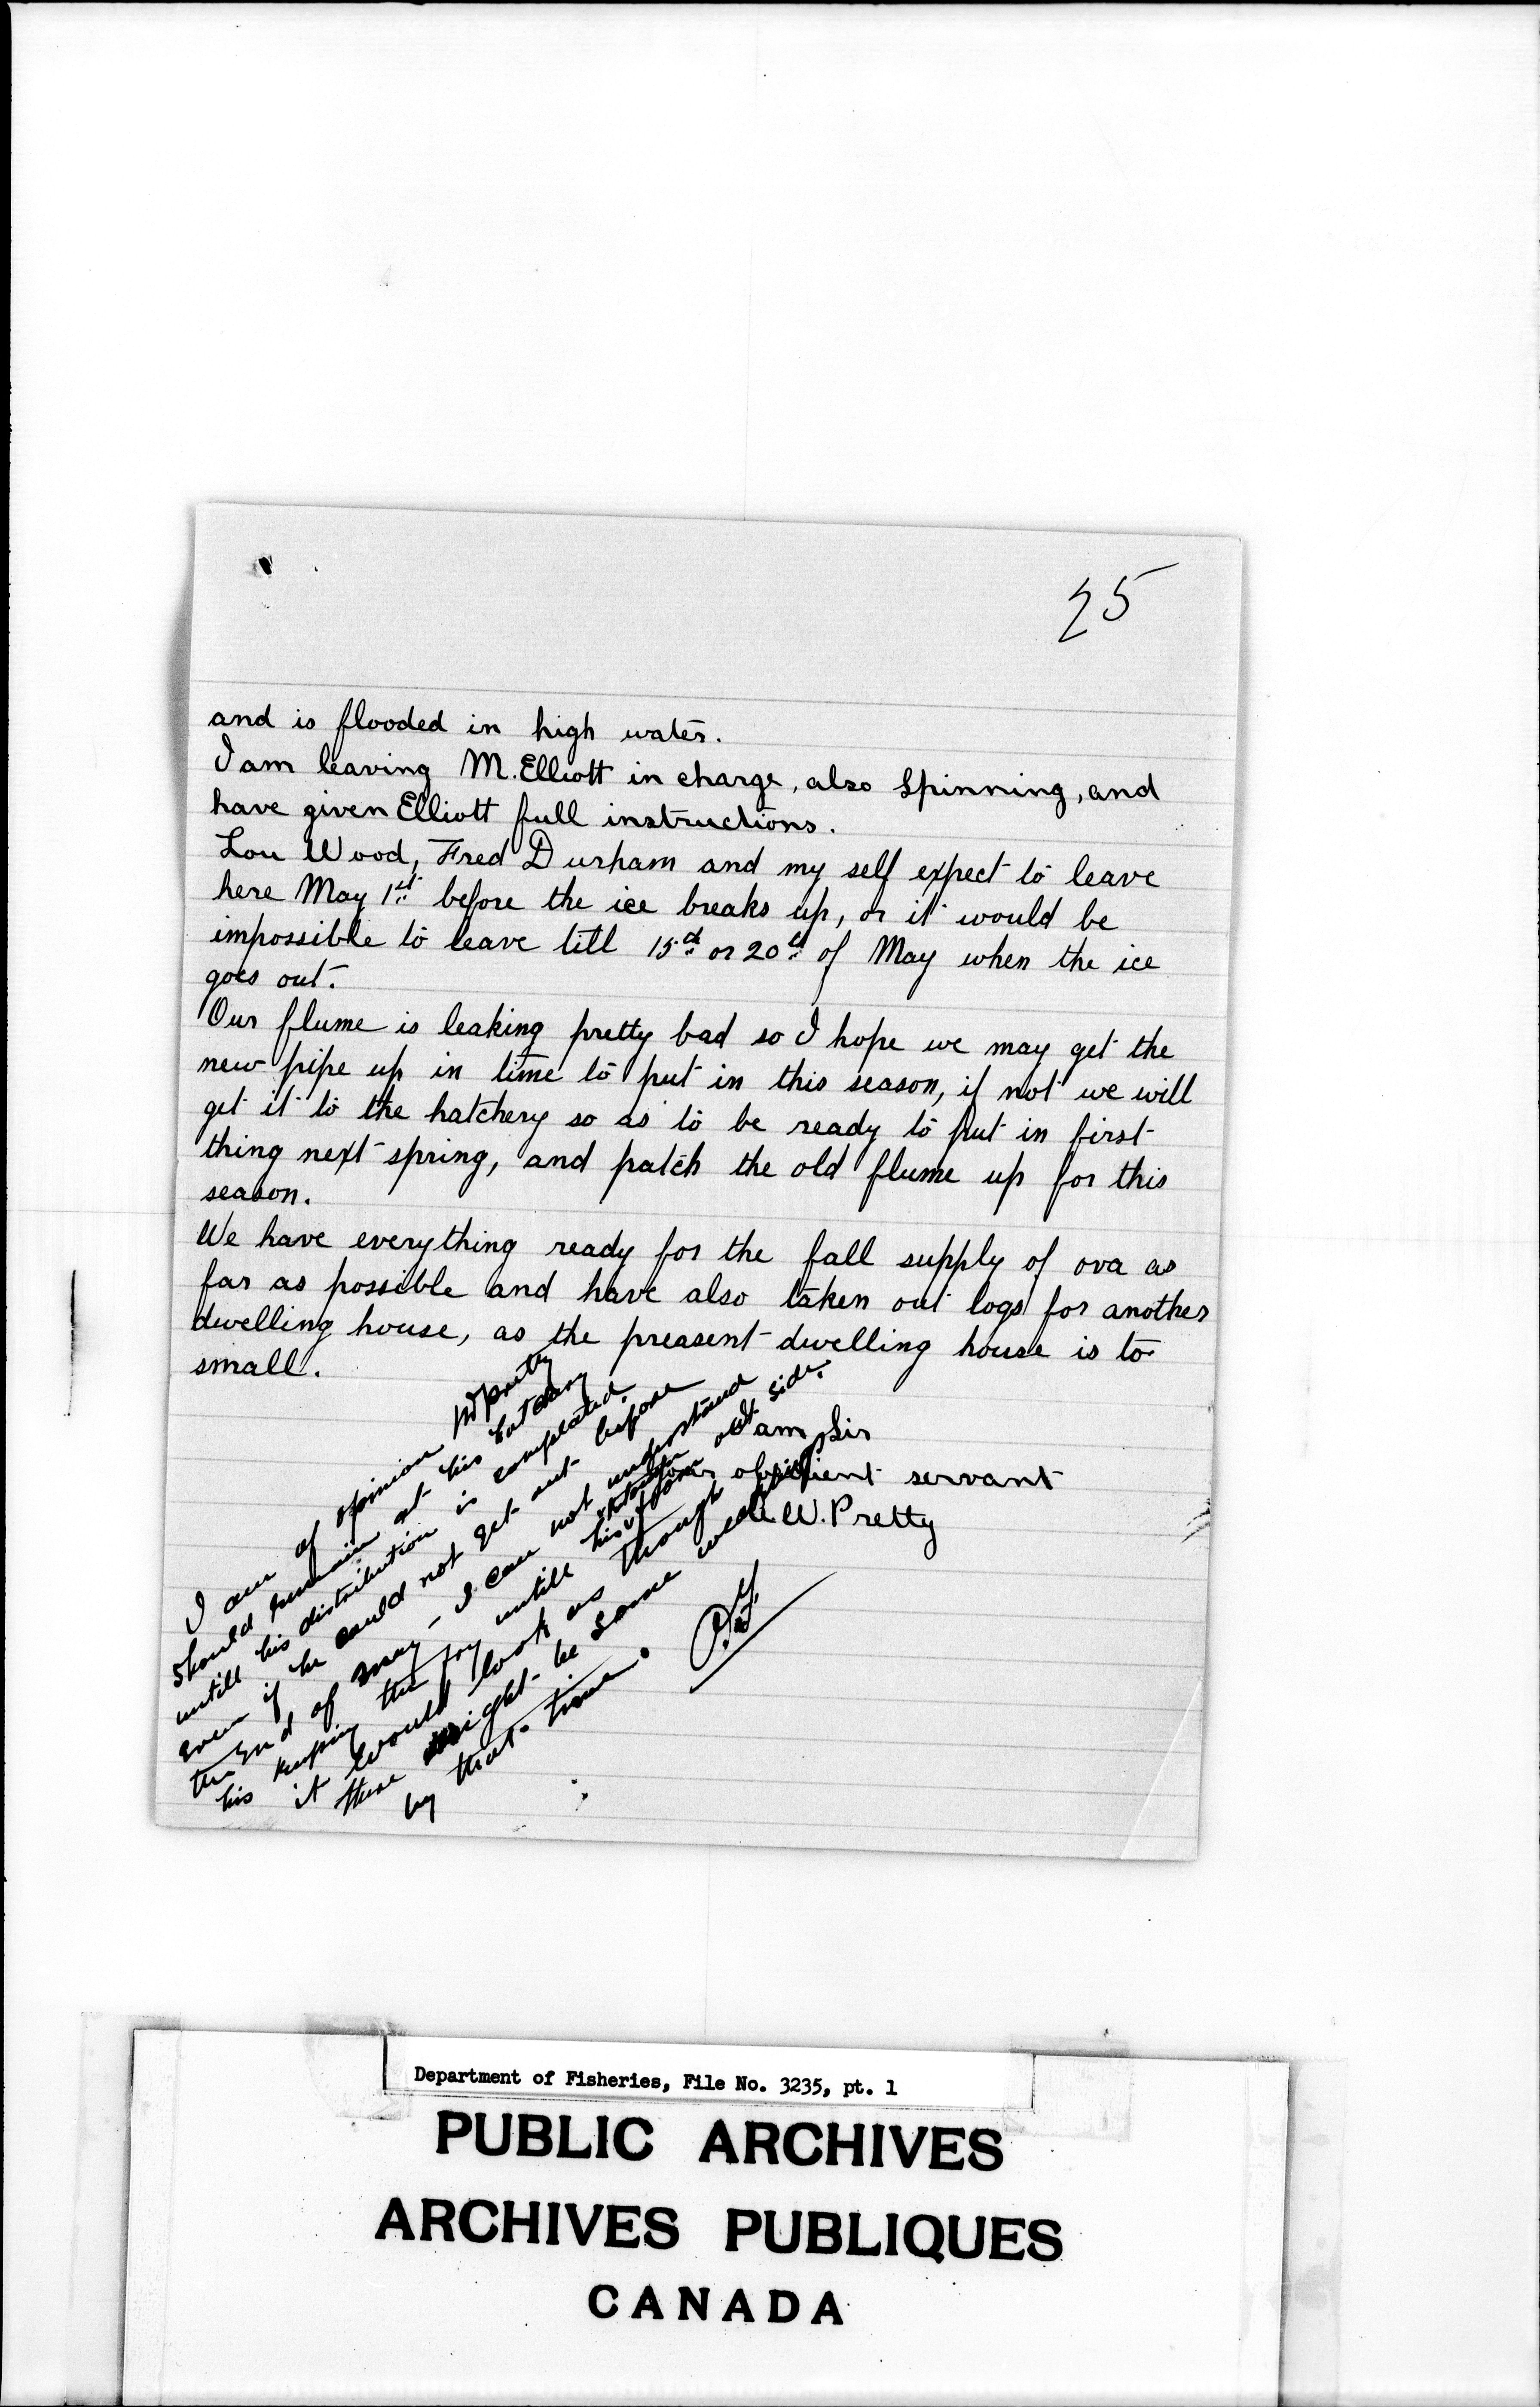 25
and is flooded in high water.
I am leaving M. Elliott in charge, also Spinning, and
have given Elliott full instructions.
Lou Wood, Fred Durham and my self expect to leave
here May 1st before the ice breaks up, or it would be
impossible to leave till 15th or 20th of May when the ice
goes out.
Our flume is leaking pretty bad so I hope we may get the
new pipe up in time to put in this season, if not we will
get it to the hatchery so as to be ready to put in first
thing next spring, and patch the old flume up for this
season.
We have everything ready for the fall supply of ova as
far as possible and have also taken out logs for another
dwelling house, as the preasent dwelling house is to
small.
I am Sir
obedient servant
W. Pretty
I am of opinion Mr Pretty
should remain at his hatchery
untill his distribution is completed.
Even if he could not get out before
the End of May - I can not understand
his keeping the fry untill his return from out side.
it would look as though
there might be some
by that time.
Department of Fisheries, File No. 3235, pt. 1
PUBLIC ARCHIVES
ARCHIVES PUBLIQUES
CANADA